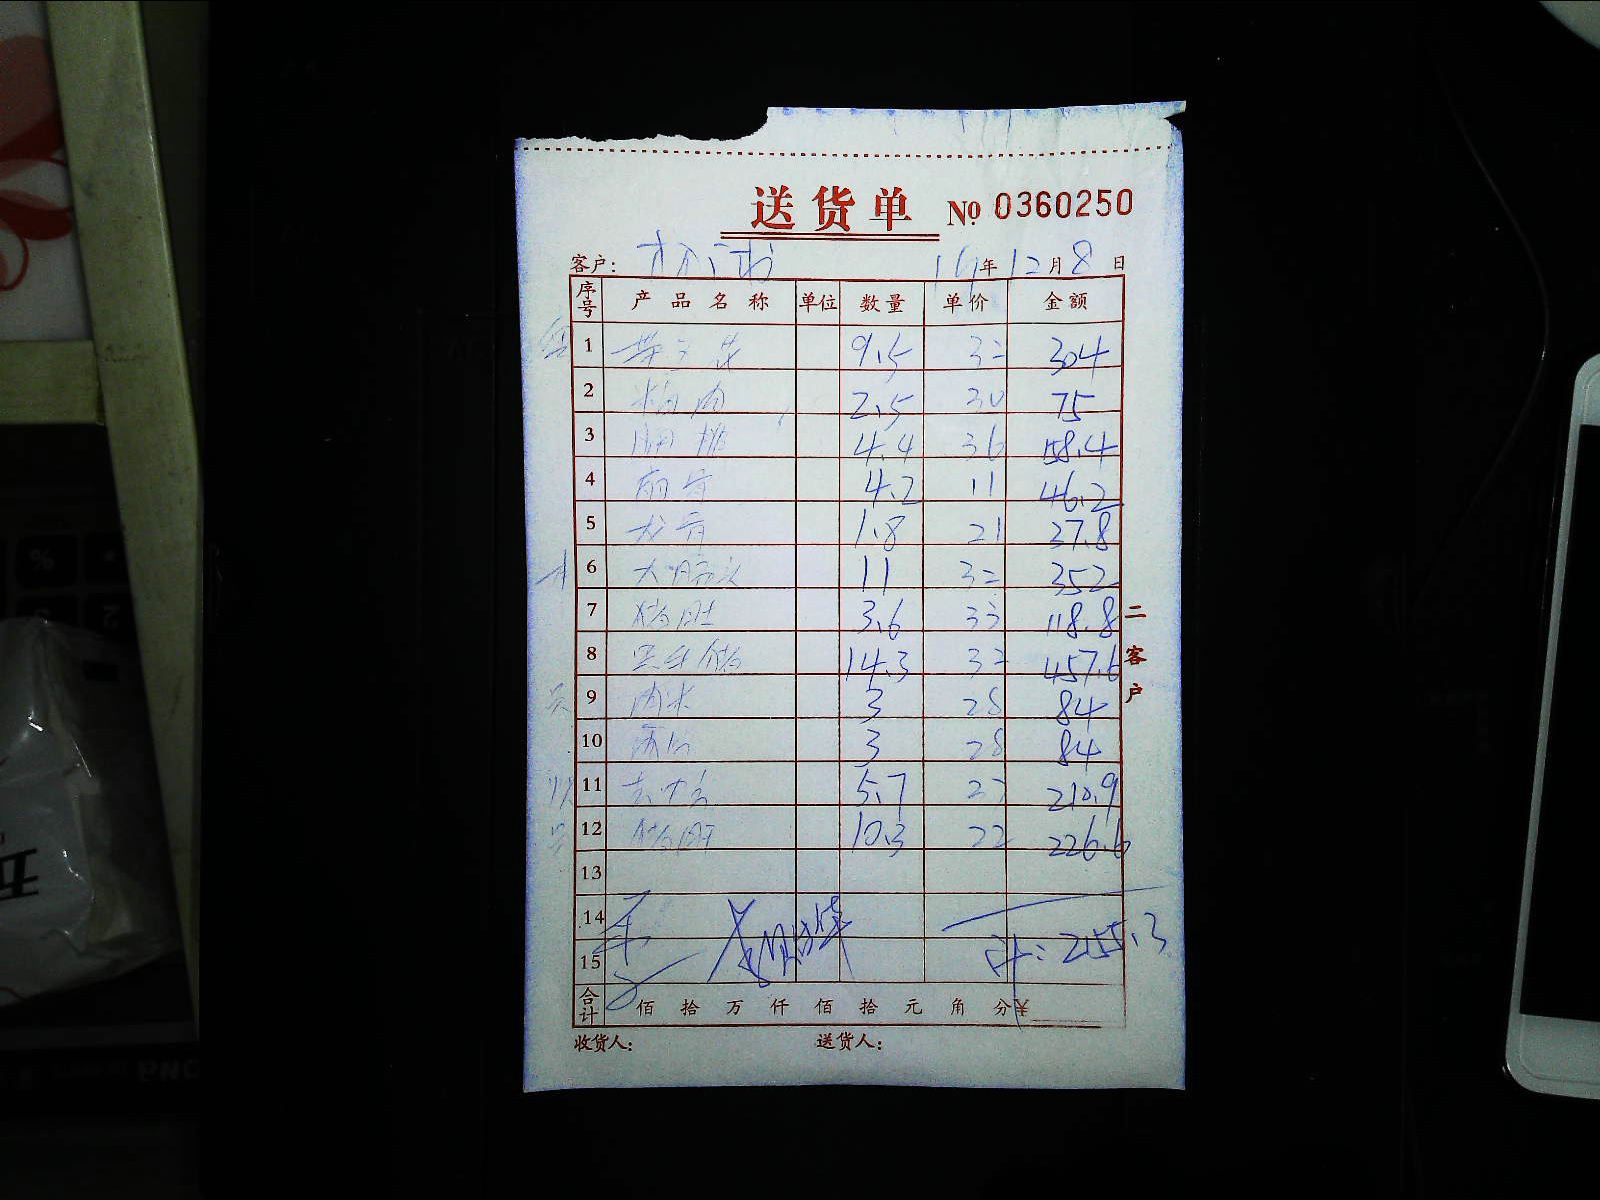 送货单 No 0360250
客户: 年 12 月 8 日
序号 产品名称 单位 数量 单价 金额
1 9.5 32 304
2 粉肉 2.5 30 75
3 4.4 36 158.4
4 4.2 11 46.2
5 龙骨 1.8 21 37.8
6 大肠头 11 32 352
7 猪肚 3.6 33 118.8
8 14.3 32 457.6
9 肉米 3 28 84
10 3 28 84
11 5.7 210.9
12 猪肝 10.3 22 226.6
13
14
15 计: 2155.3
合计 佰 拾 万 仟 佰 拾 元 角 分 ¥
收货人: 送货人:
二客户